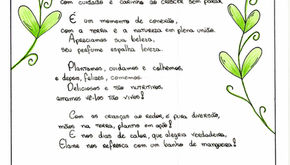 com cuidado e carinho ao crescer sem pausa.
É um momento de conexão,
com a terra e a natureza em plena união.
Apreciamos sua beleza,
seu perfume espalha leveza.
Plantamos, cuidamos e colhemos
e depois, felizes, comemos.
Deliciosos e tão nutritivos,
amamos vê-los tão vivos!
Com as crianças ao redor, é pura diversão,
mãos na terra, plantar em ação!
E nos dias de calor, que alegria verdadeira,
Elaine nos refresca com um banho de mangueira!